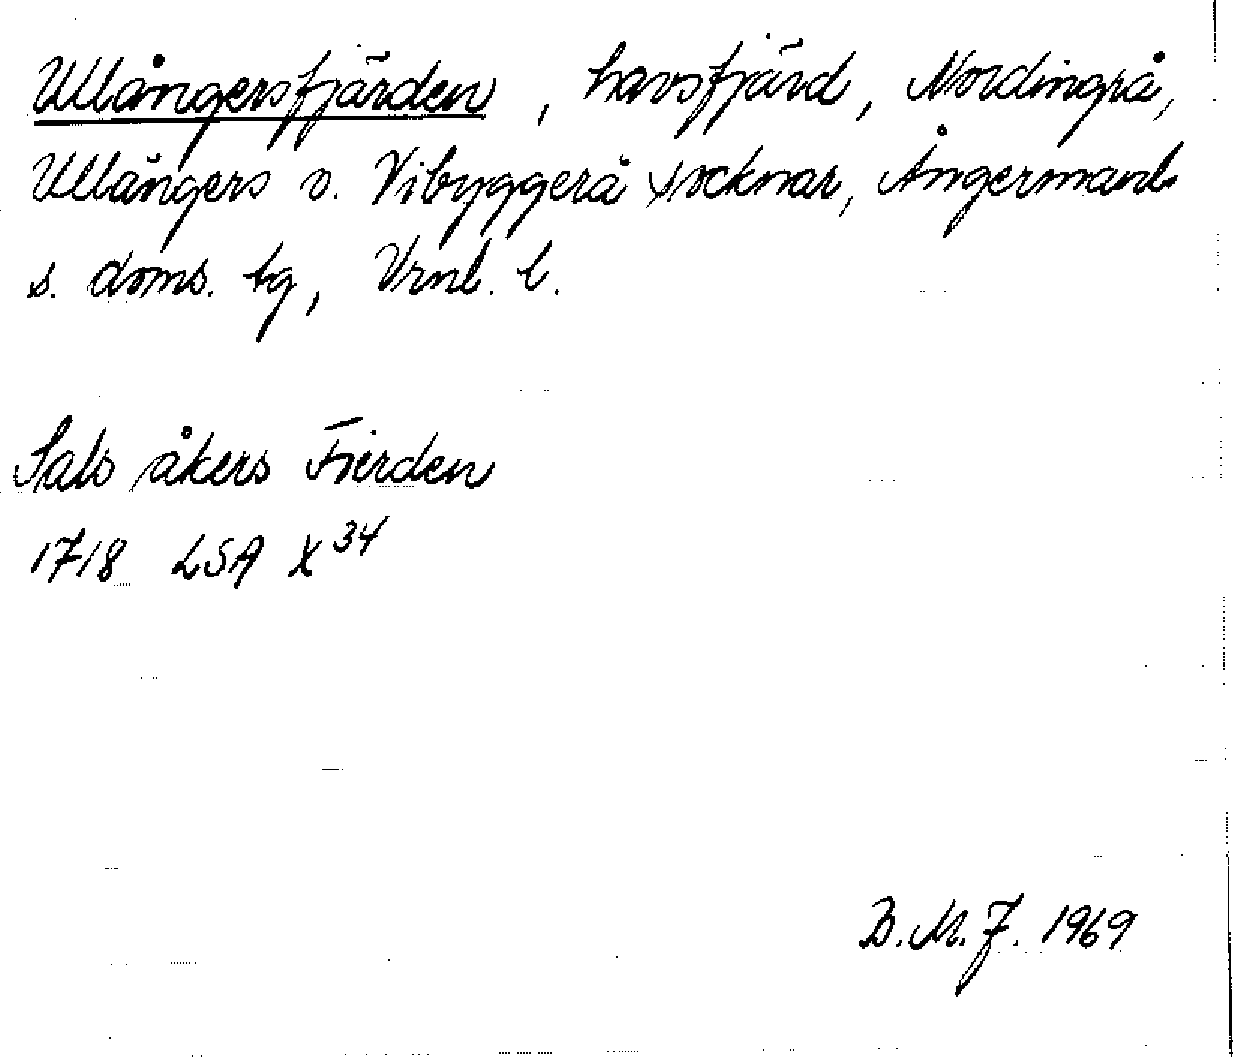 Ullångersfjärden, havsfjärd, Nordingrå,
Ullångers o. Vibyggerå socknar, Ångermanl.
s. doms. tg, Vrnl. l.
Sals åkers Fierden
1718 LSA X 34
B.M.J. 1969